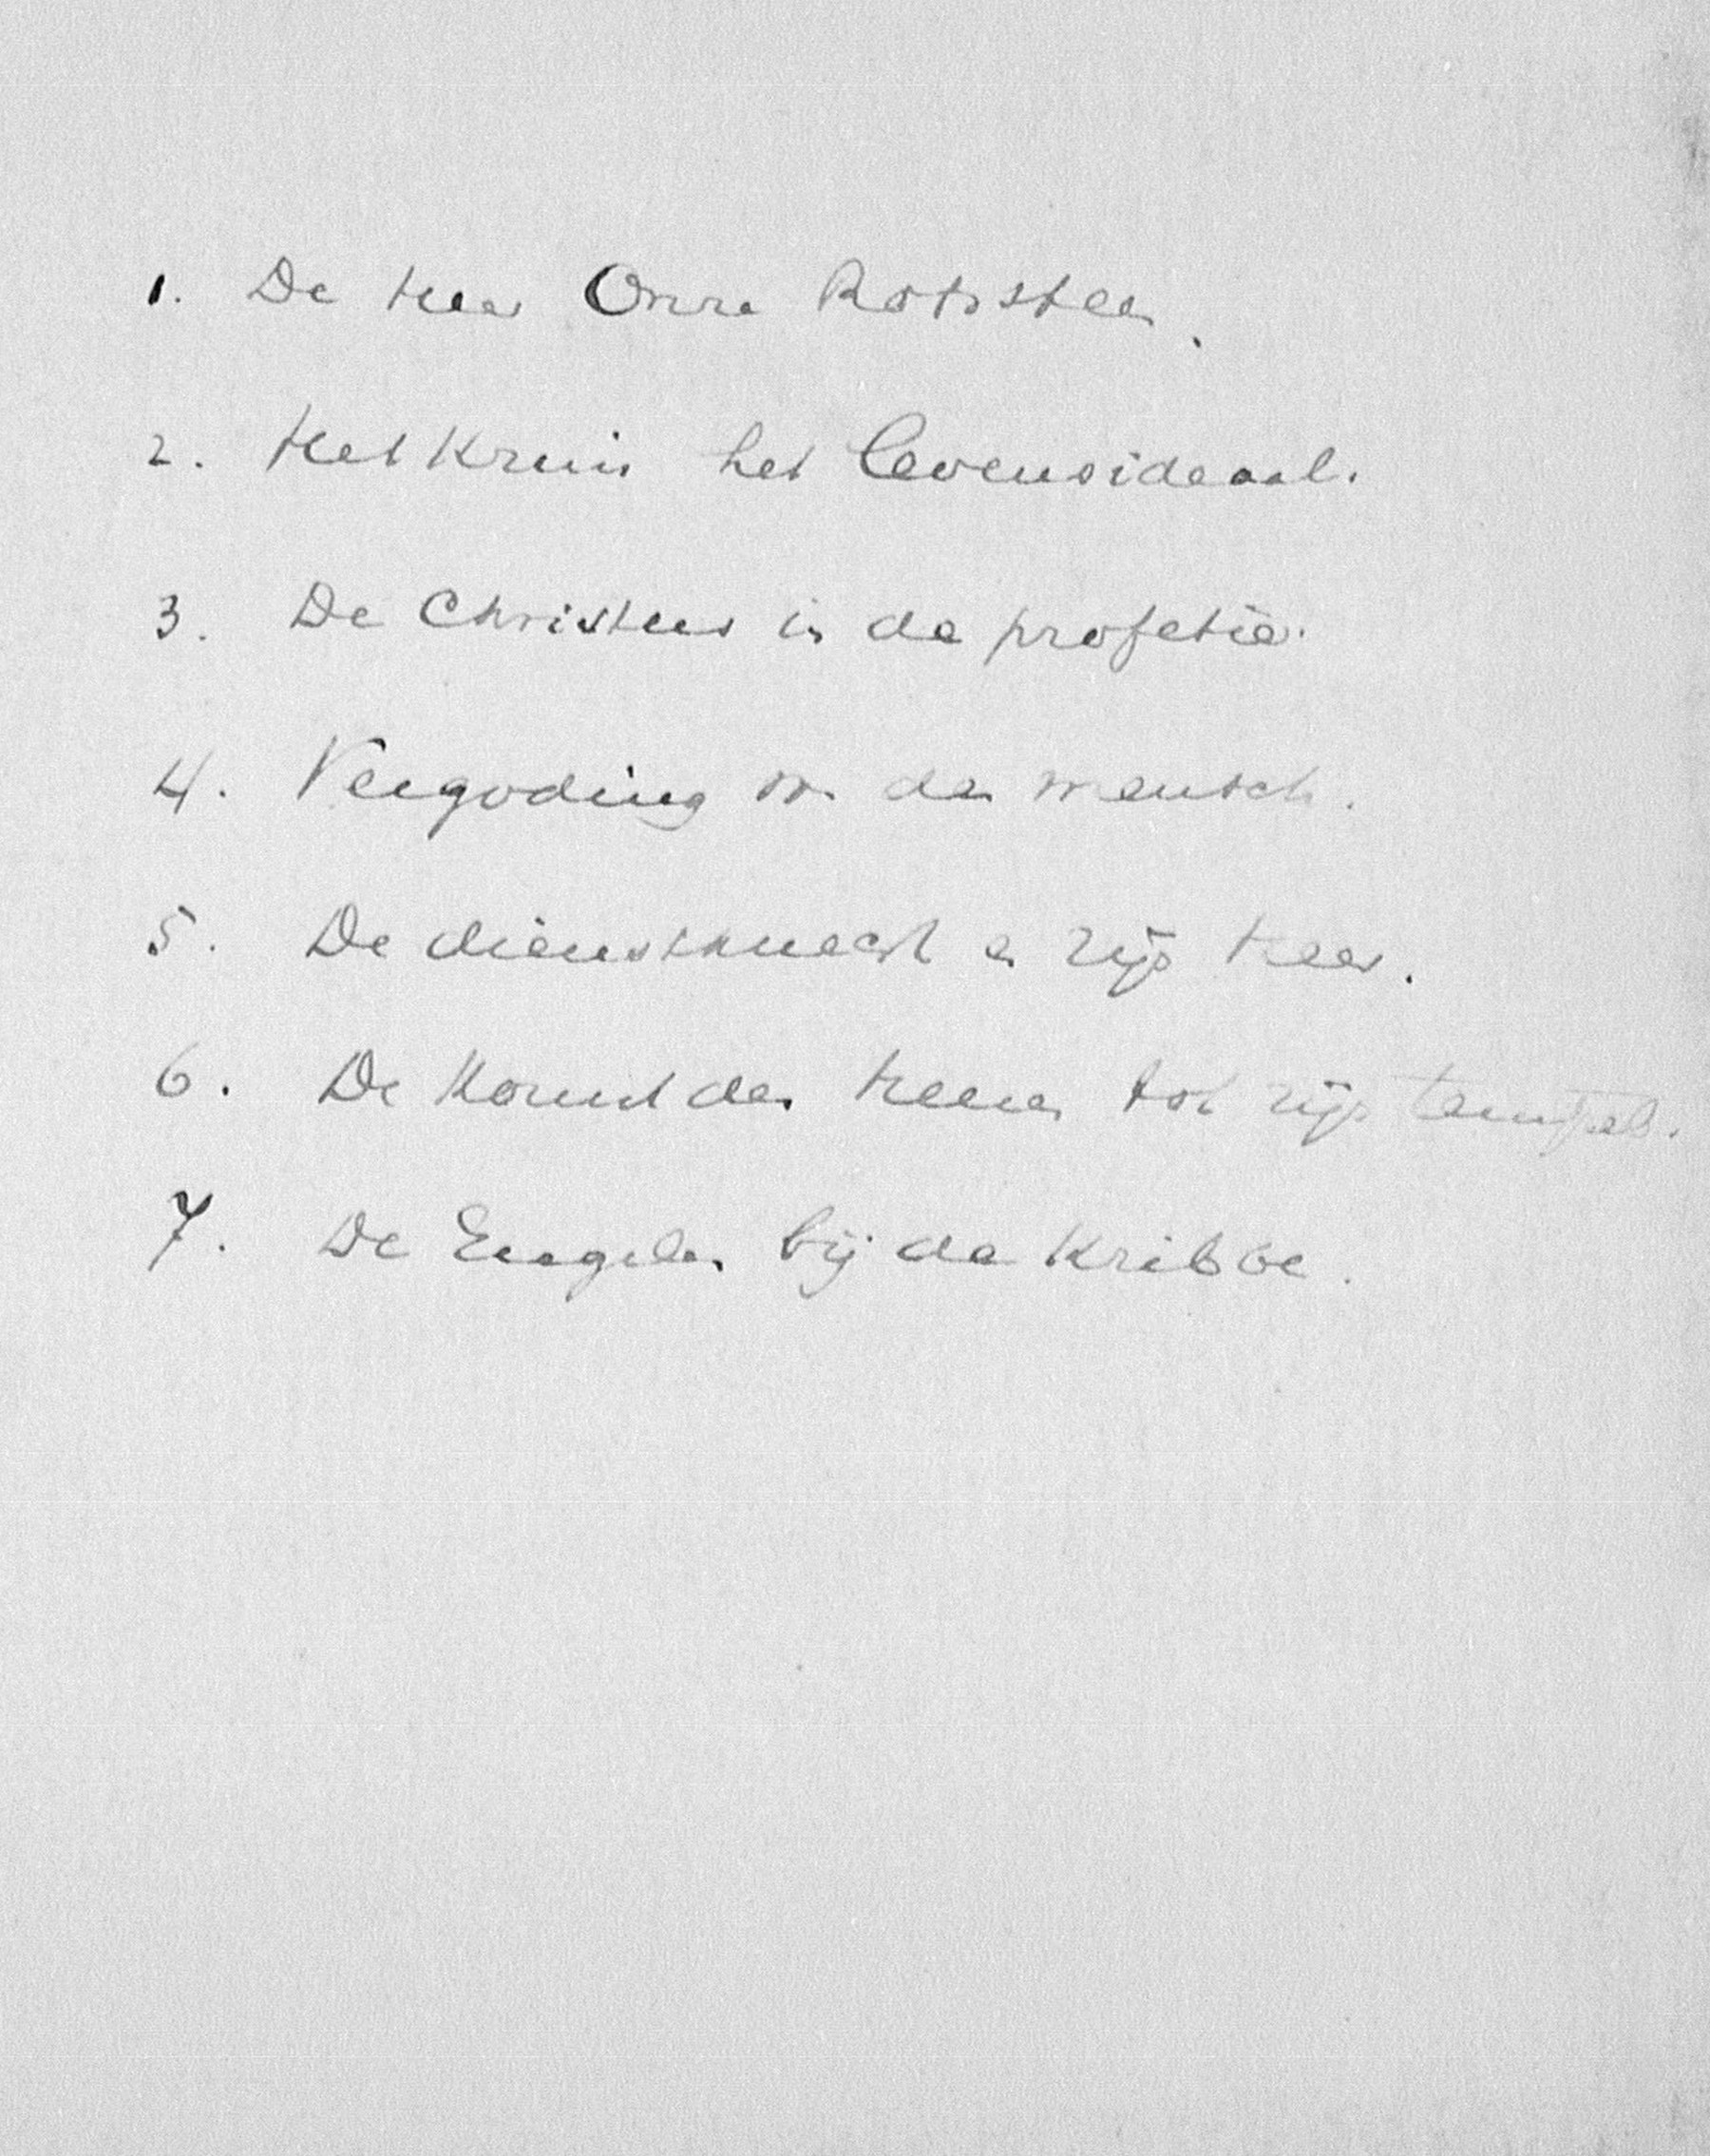 1. De Heer Onze Rotssteen.
2. Het Kruis het levensideaal.
3. De Christus in de profetie.
4. Vergoding v. den mensch.
5. De dienstknecht en zijn Heer.
6. De Komst des Heeren tot zijn tempel.
7. De Engelen bij de Kribbe.